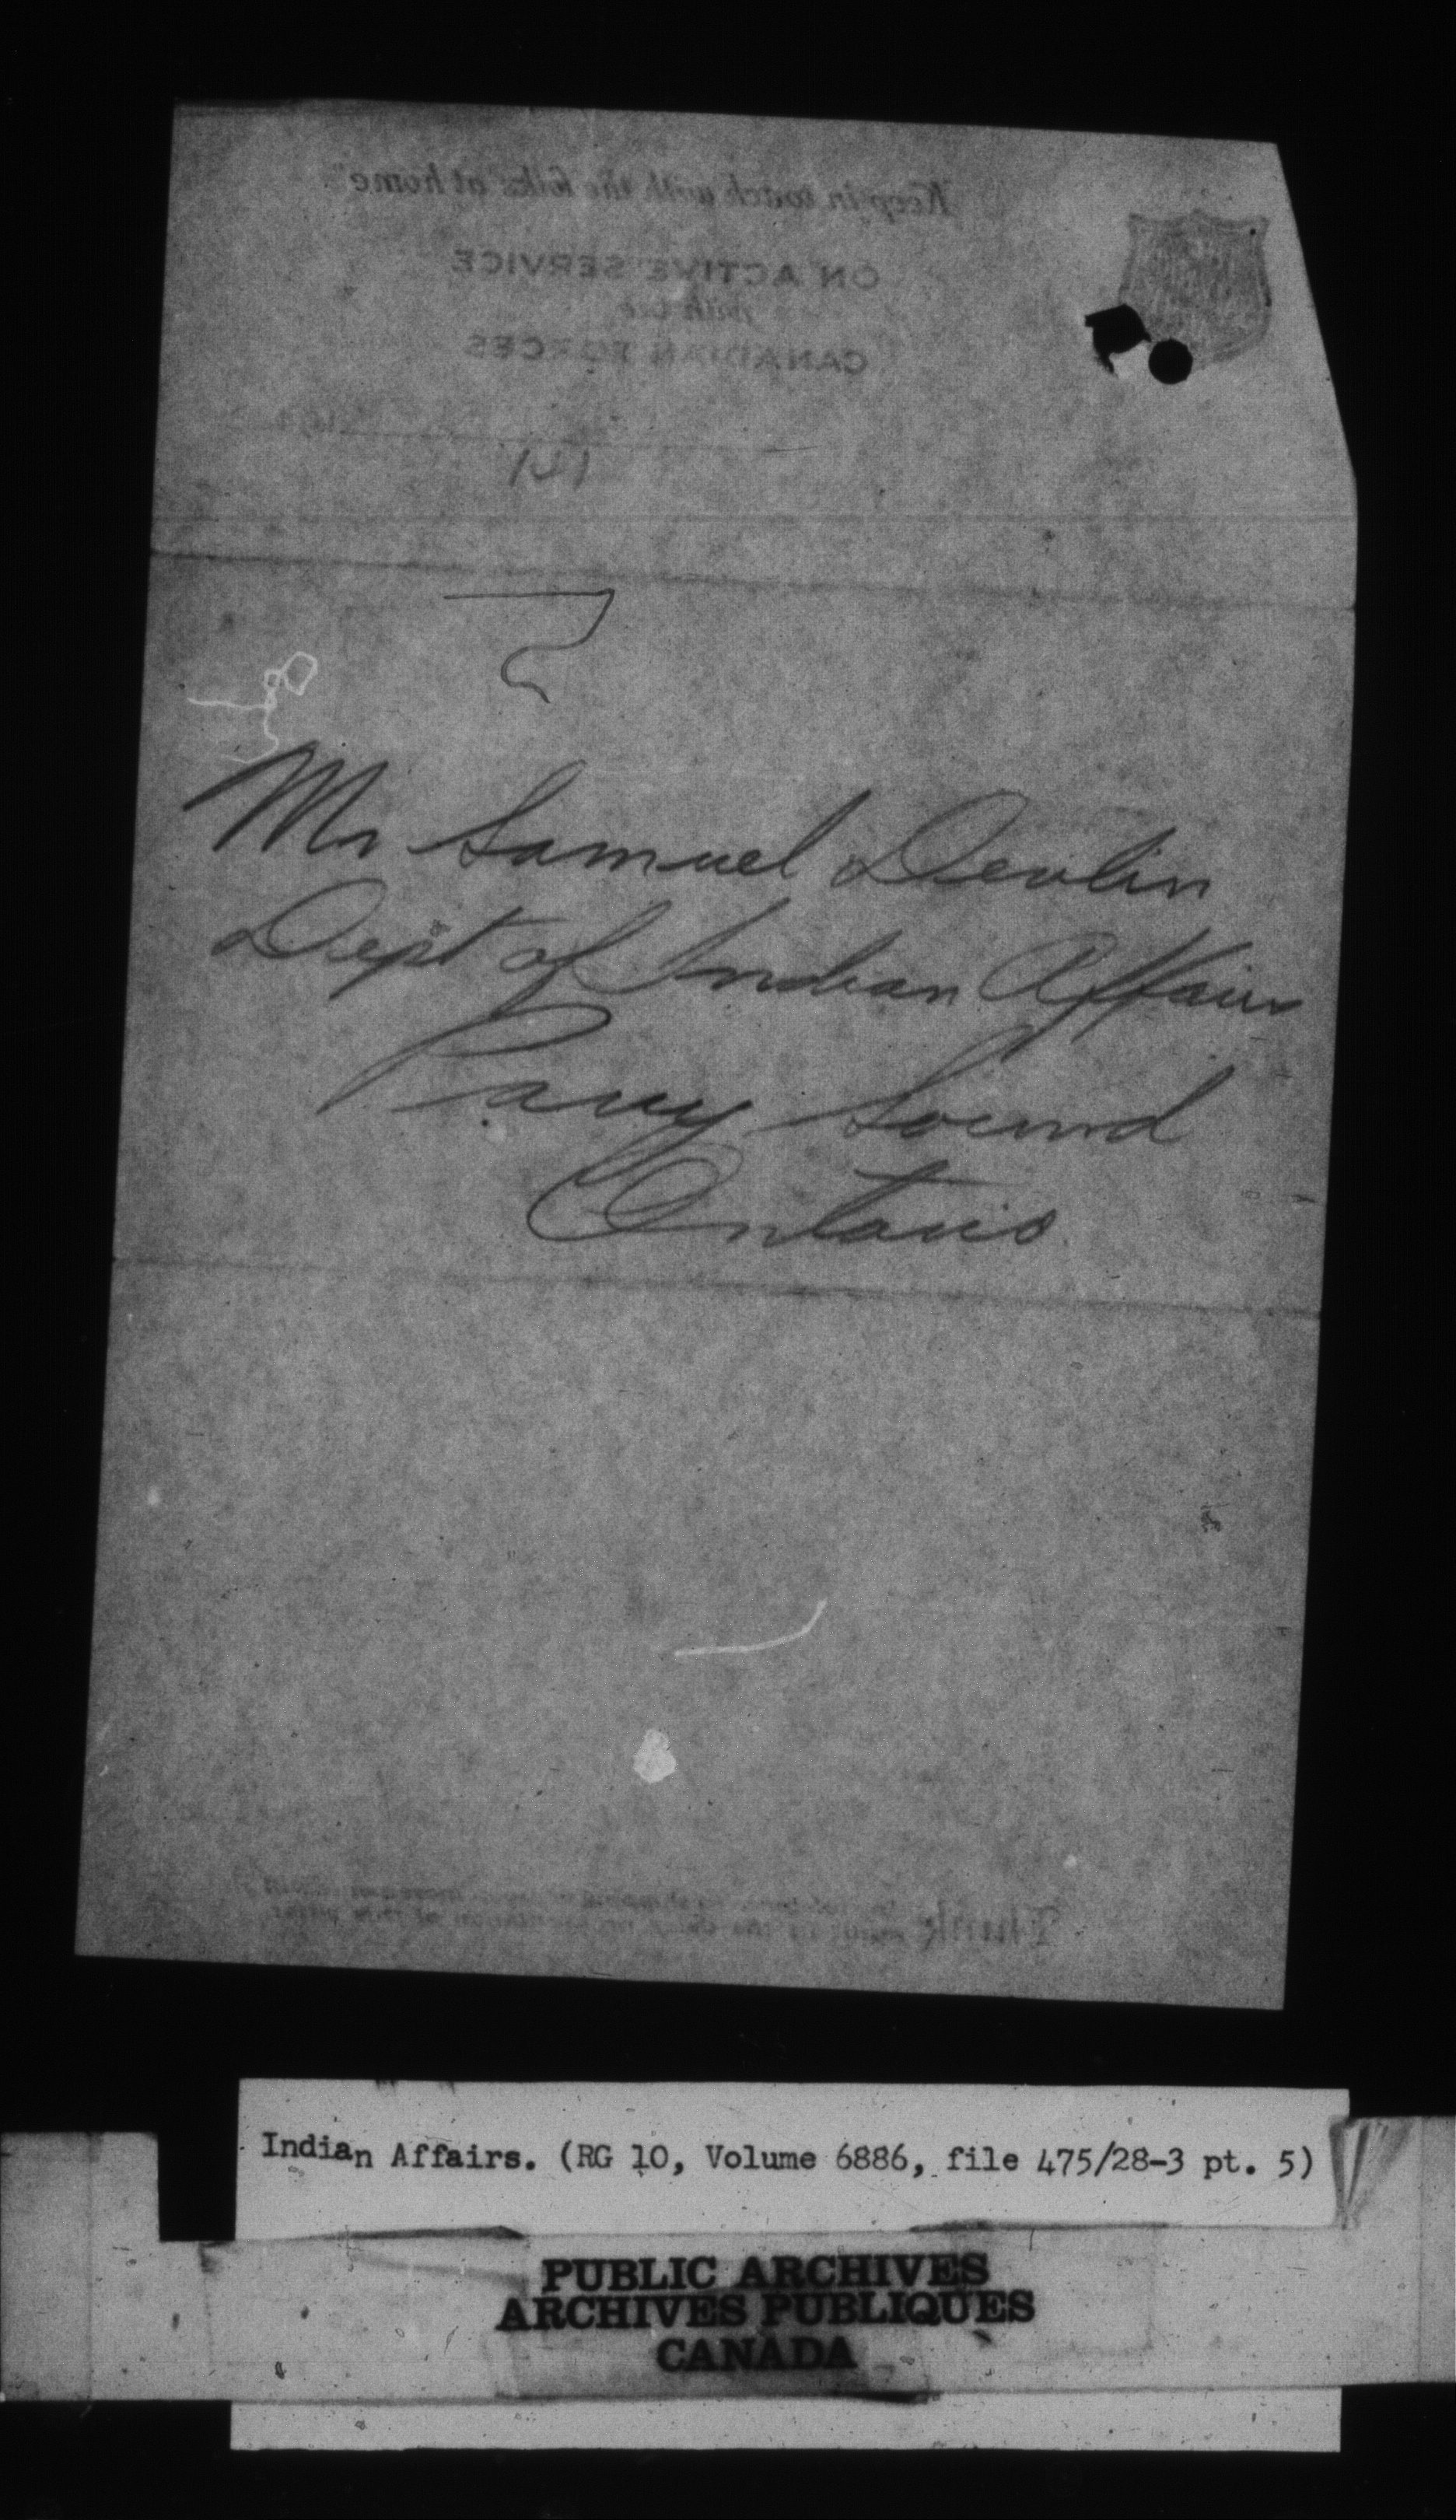 Keep in touch with the folks at home"
ON ACTIVE SERVICE
with the
CANADIAN FORCES
Mr Samuel Devlin
Dept of Indian Affairs
Parry Sound
Ontario
Think
Indian Affairs. (RG 10, Volume 6886, file 475/28-3 pt. 5)
PUBLIC ARCHIVES
ARCHIVES PUBLIQUES
CANADA